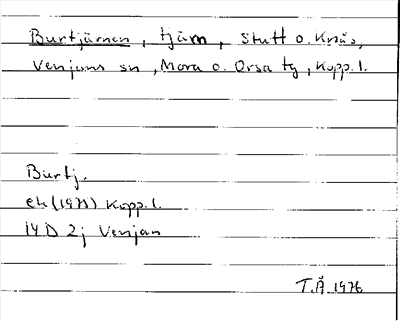 Burtjärnen, tjärn, Stutt o. Knås,
Venjans sn, Mora o. Orsa tg, Kopp. l.
Burtj.
ek (1973) Kopp. l.
14D 2j Venjan
T.Å 1976